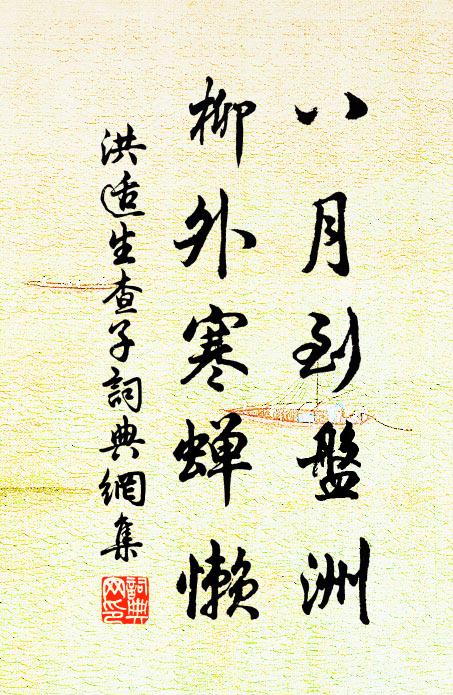 八月到盤洲
柳外寒蝉懶
洪适生查子詞典網集
詞典网印